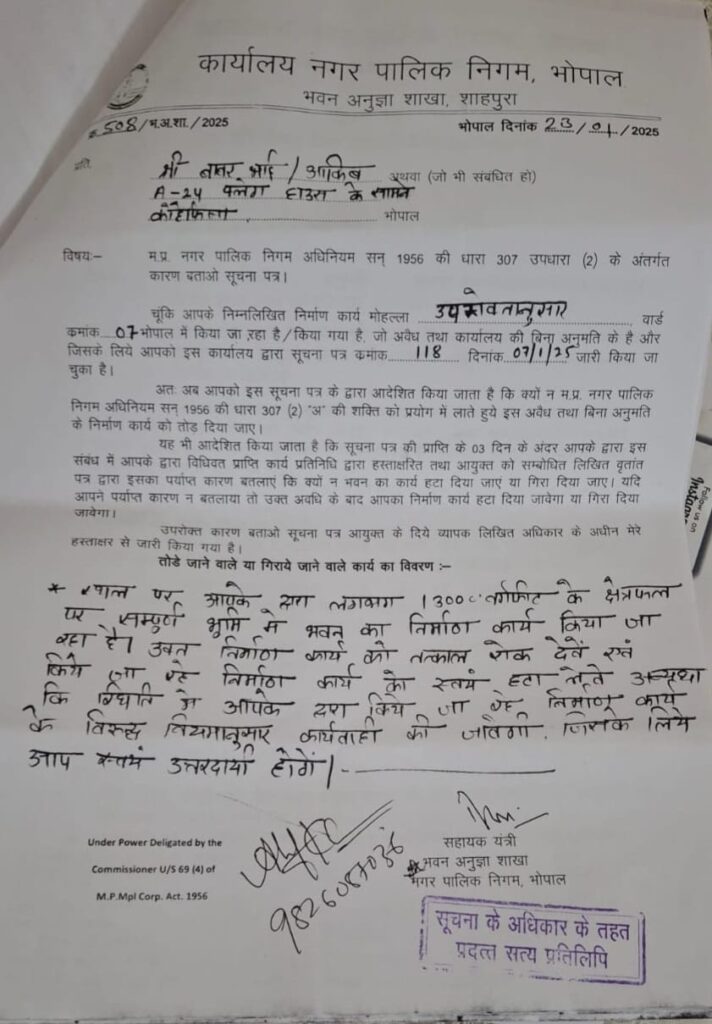 कार्यालय नगर पालिक निगम, भोपाल
भवन अनुज्ञा शाखा, शाहपुरा
508/भ.अ.शा./2025
भोपाल दिनांक 23/01/2025
प्रति,
श्री बाबर भाई / आकिब अथवा (जो भी संबंधित हो)
A-24 फ्लेग हाउस के सामने
कोहेफिजा भोपाल
विषयः- म.प्र. नगर पालिक निगम अधिनियम सन् 1956 की धारा 307 उपधारा (2) के अंतर्गत
कारण बताओ सूचना पत्र।
चूंकि आपके निम्नलिखित निर्माण कार्य मोहल्ला उपरोक्तानुसार वार्ड
कमांक 07 भोपाल में किया जा रहा है/किया गया है, जो अवैध तथा कार्यालय की बिना अनुमति के है और
जिसके लिये आपको इस कार्यालय द्वारा सूचना पत्र कमांक 118 दिनांक 07/1/25 जारी किया जा
चुका है।
अतः अब आपको इस सूचना पत्र के द्वारा आदेशित किया जाता है कि क्यों न म.प्र. नगर पालिक
निगम अधिनियम सन् 1956 की धारा 307 (2) "अ" की शक्ति को प्रयोग में लाते हुये इस अवैध तथा बिना अनुमति
के निर्माण कार्य को तोड़ दिया जाए।
यह भी आदेशित किया जाता है कि सूचना पत्र की प्राप्ति के 03 दिन के अंदर आपके द्वारा इस
संबंध में आपके द्वारा विधिवत प्राप्ति कार्य प्रतिनिधि द्वारा हस्ताक्षरित तथा आयुक्त को सम्बोधित लिखित वृतांत
पत्र द्वारा इसका पर्याप्त कारण बतलाएं कि क्यों न भवन का कार्य हटा दिया जाएं या गिरा दिया जाए। यदि
आपने पर्याप्त कारण न बतलाया तो उक्त अवधि के बाद आपका निर्माण कार्य हटा दिया जावेगा या गिरा दिया
जावेगा।
उपरोक्त कारण बताओ सूचना पत्र आयुक्त के दिये व्यापक लिखित अधिकार के अधीन मेरे
हस्ताक्षर से जारी किया गया है।
तोडे जाने वाले या गिराये जाने वाले कार्य का विवरण :-
* स्थल पर आपके द्वारा लगभग 13000 वर्गफिट के क्षेत्रफल
पर सम्पूर्ण भूमि मे भवन का निर्माण कार्य किया जा
रहा है। उक्त निर्माण कार्य को तत्काल रोक देवें एवं
किये जा रहे निर्माण कार्य को स्वयं हटा लेवे अन्यथा
कि स्थिति मे आपके द्वारा किये जा रहे निर्माण कार्य
के विरूद्ध नियमानुसार कार्यवाही की जावेगी, जिसके लिये
आप स्वयं उत्तरदायी होगें।-
Under Power Deligated by the
Commissioner U/S 69 (4) of
M.P.Mpl Corp. Act. 1956
सहायक यंत्री
भवन अनुज्ञा शाखा
नगर पालिक निगम, भोपाल
सूचना के अधिकार के तहत
प्रदत्त सत्य प्रतिलिपि
Follow us on